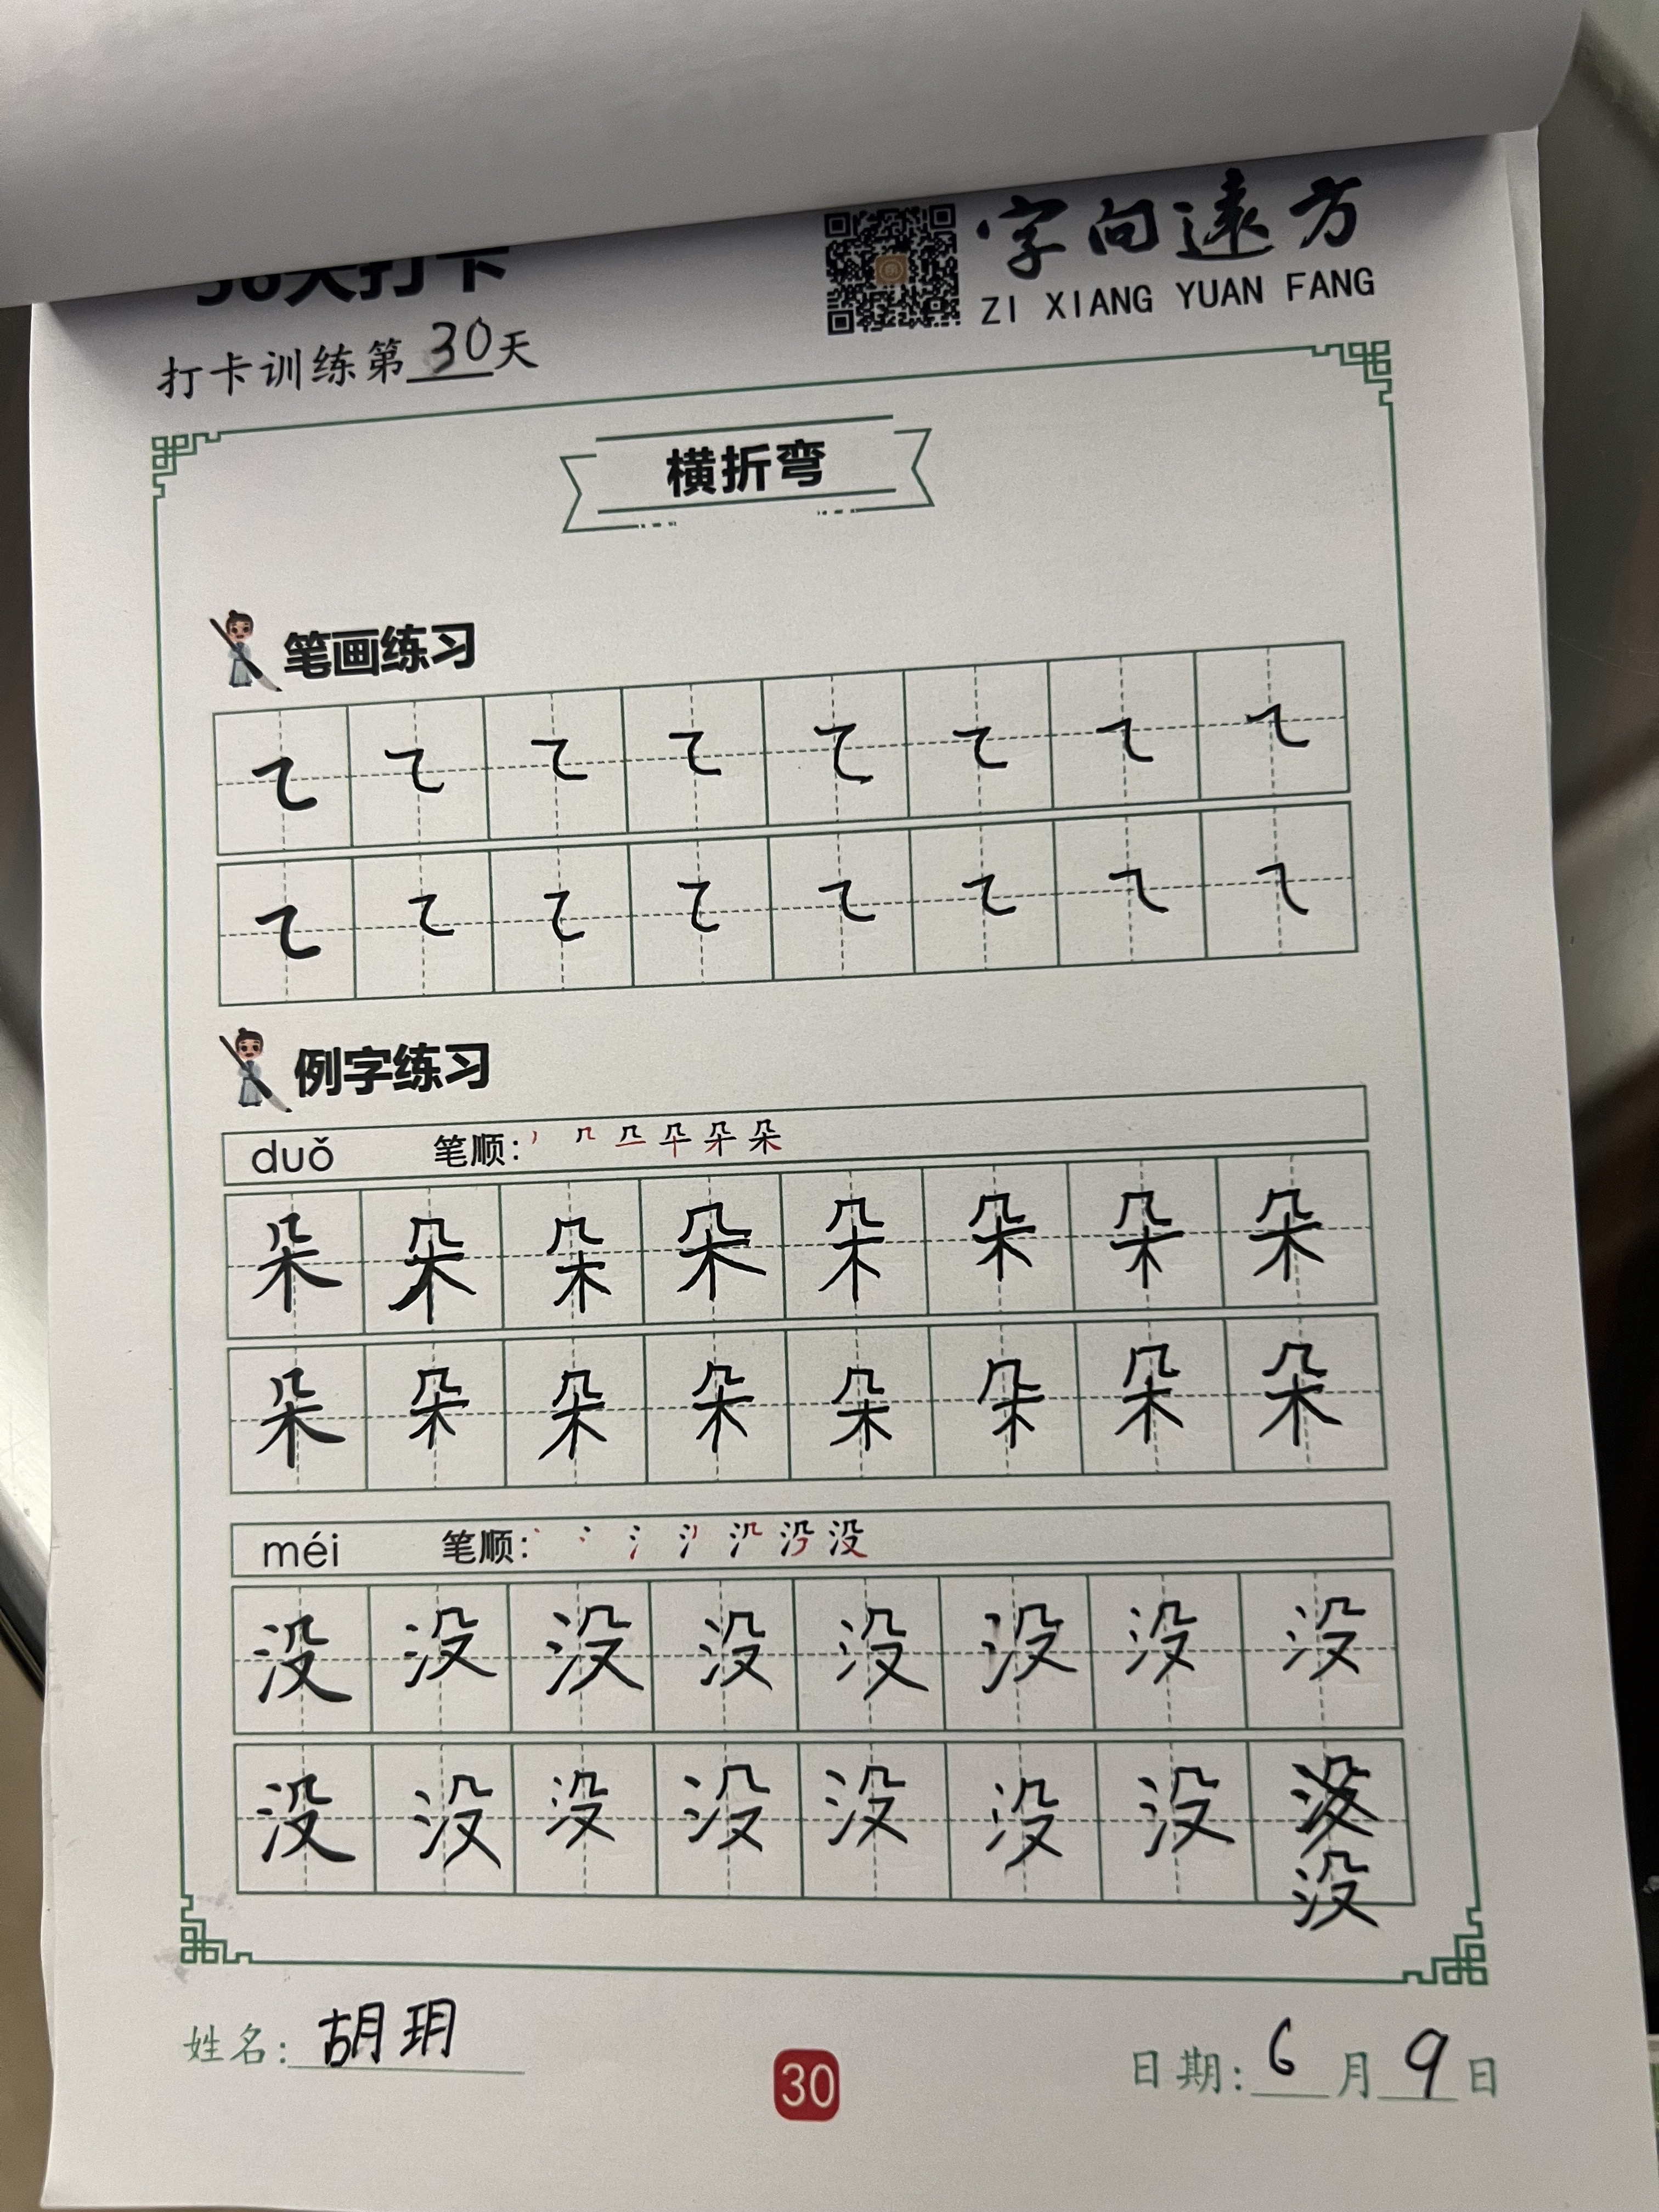 字向遠方
天打卡
ZI XIANG YUAN FANG
打卡训练第30天
横折弯
笔画练习
例字练习
duǒ 笔顺: 朵
朵 朵 朵 朵 朵 朵 朵 朵
朵 朵 朵 朵 朵 朵 朵 朵
méi 笔顺: 没
没 没 没 没 没 没 没 没
没 没 没 没 没 没 没
没
姓名: 胡玥
30
日期: 6月9日